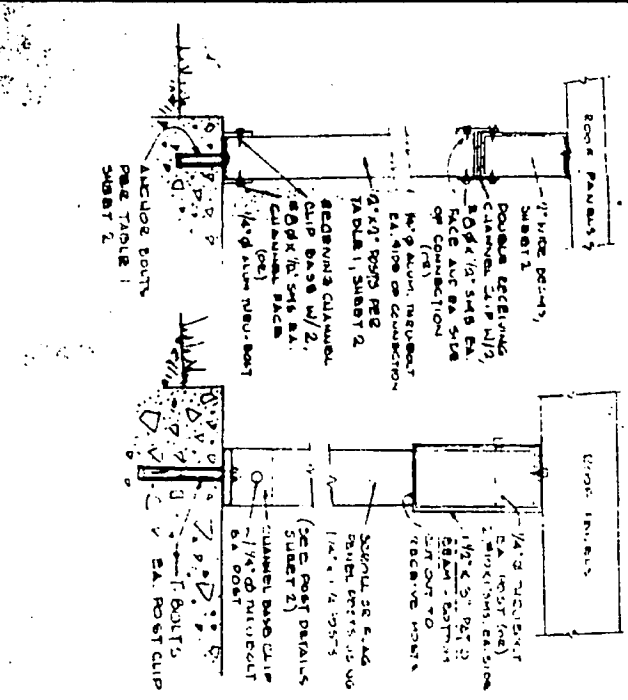 ROOF PANELS
2" WIDE BEAMS,
SHEET 2
DOUBLE RECEIVING
CHANNEL CLIP W/2,
#8 x 1/2" SMS EA.
FACE AND EA SIDE
OF CONNECTION
(OR)
1/4" Ø ALUM. THRU-BOLT
EA. SIDE OF CONNECTION
POSTS PER
TABLE 1, SHEET 2
RECEIVING CHANNEL
CLIP BASE W/2,
#8 x 1/2" SMS EA.
CHANNEL FACE
(OR)
1/4" Ø ALUM THRU-BOLT
ANCHOR BOLTS
PER TABLE 1
SHEET 2
ROOF PANELS
1/4" Ø THRU BOLT
EA. POST (OR)
SMS. EA. SIDE
BEAM - BOTTOM
CUT OUT TO
RECEIVE POSTS
SCROLL OR FLAG
PANEL POSTS
POSTS
(SEE POST DETAILS
SHEET 2)
CHANNEL BASE CLIP
1/4" Ø THRU BOLT
EA POST
BOLTS
EA. POST CLIP